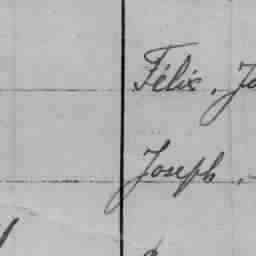 Félix, Jo
Joseph,